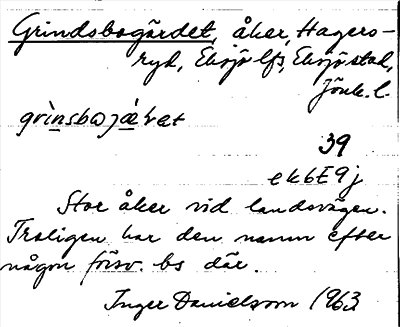 Grindsbogärdet, åker, Hagers-
ryd, Eksjö lfs, Eksjö stad,
Jönk. l.
39
ek6E9j
Stor åker vid landsvägen.
Troligen har den namn efter
någon försv. bs där.
Inger Danielsson 1963